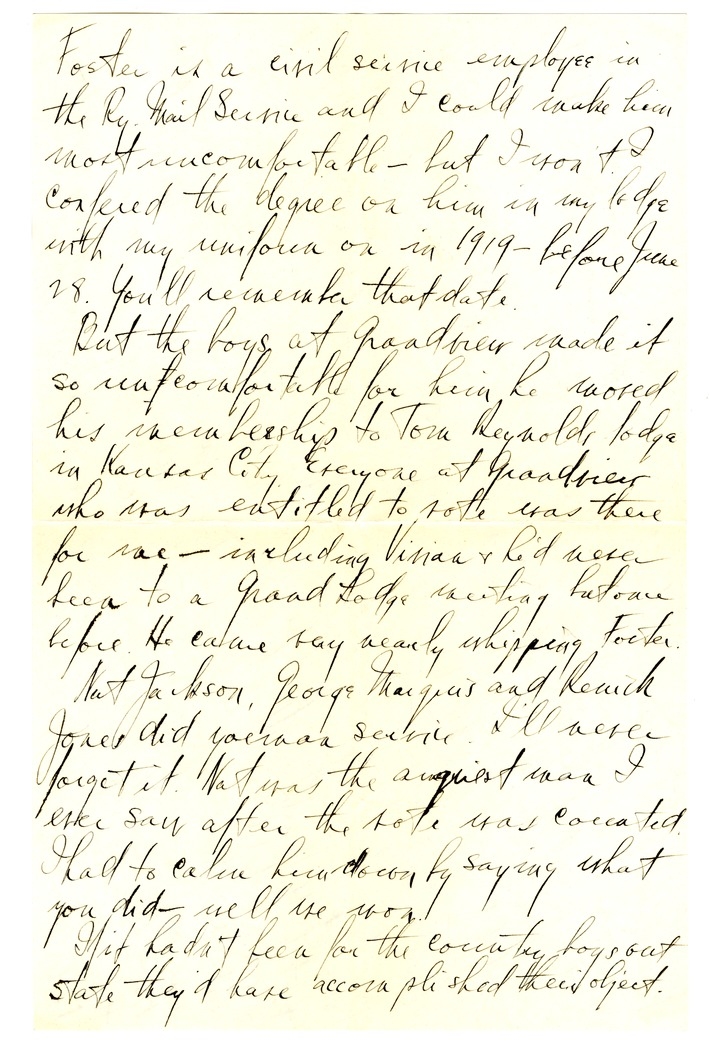 Foster is a civil service employee in
the Ry. Mail Service and I could make him
most uncomfortable - but I won't. I
confered the degree on him in my lodge
with my uniform on in 1919 - before June
28. You'll remember that date.
But the boys at Grandview made it
so uncomfortable for him he moved
his membership to Tom Reynolds lodge
in Kansas City. Everyone at Grandview
who was entitled to vote was there
for me - including Vivian & he'd never
been to a Grand Lodge meeting but one
before. He came very nearly whipping Foster.
Nat Jackson, George Marquis and Renick
Jones did yoeman service. I'll never
forget it. Nat was the angriest man I
ever saw after the vote was counted.
I had to calm him down by saying what
you did - well we won.
If it hadn't been for the country boys out
state they'd have accomplished their object.